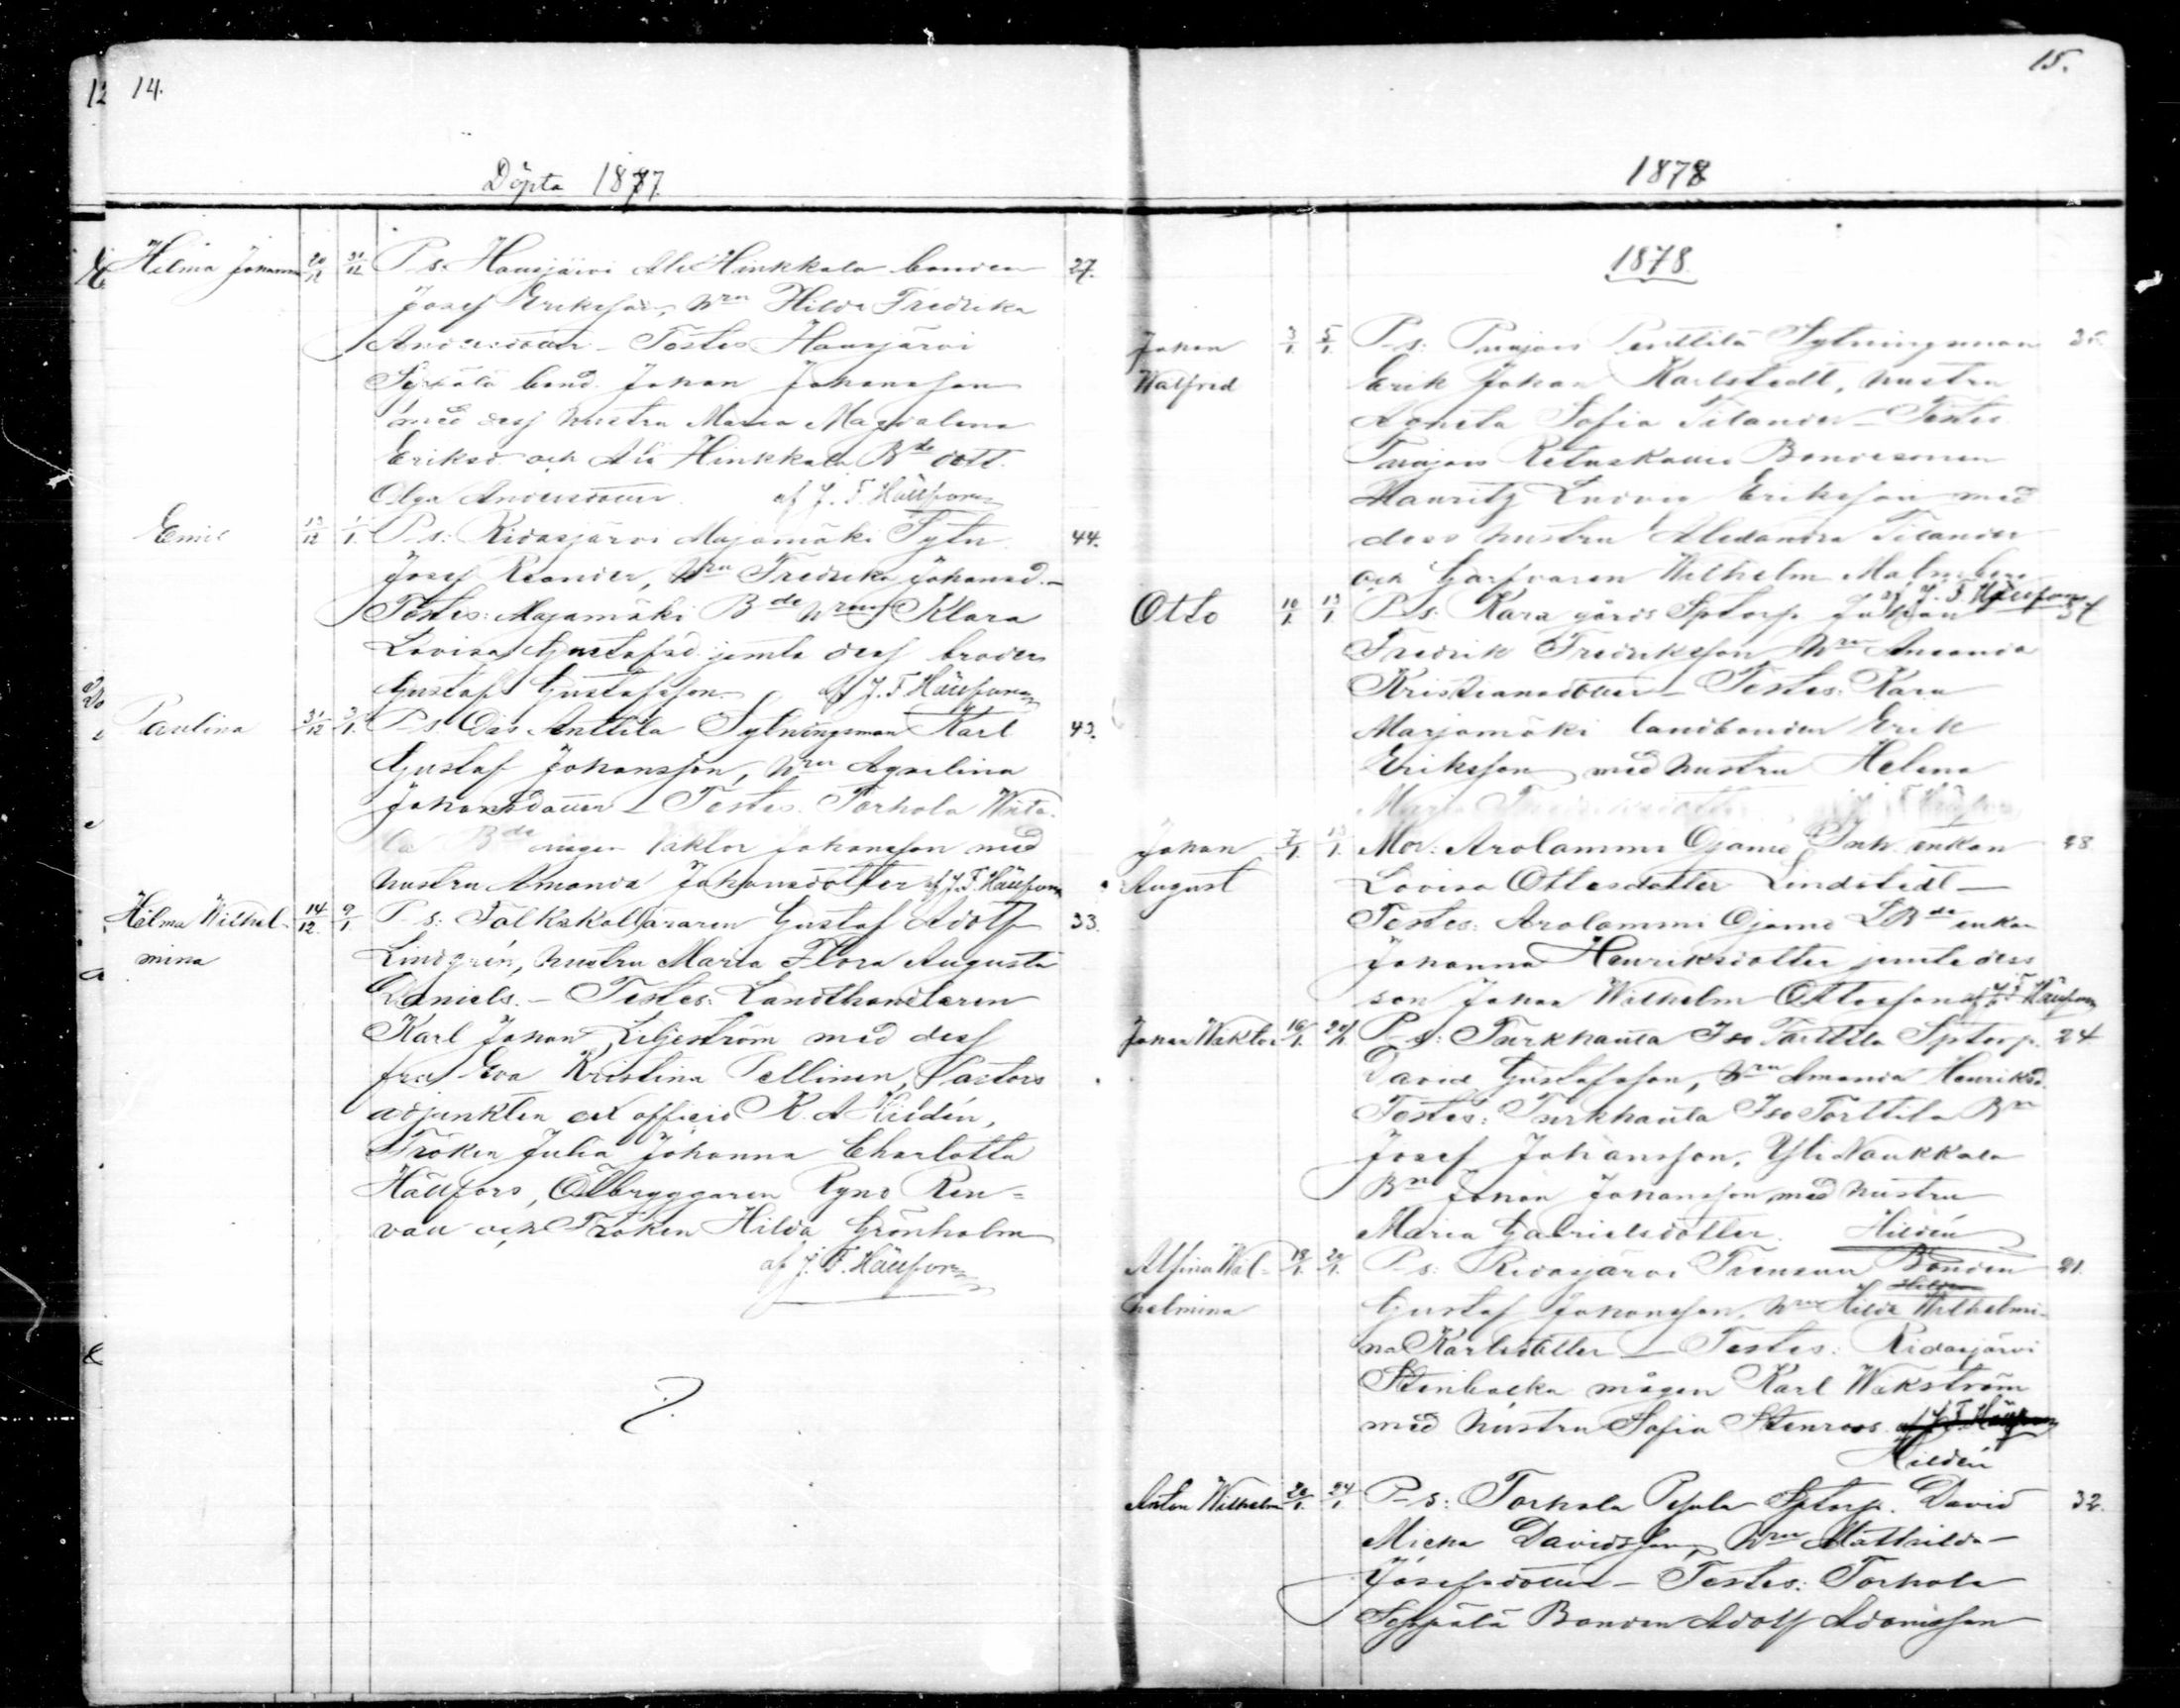 12 14.
Döpta 1877.
Hilma Johanna 20/12 31/12 P-s. Hausjärvi Ali Hinkkala bonden 27.
Josef Eriksson, hru Hilda Fredrika
Andersdotter - Testes Hausjärvi
Seppälä bond. Johan Johansson
med dess hustru Maria Magdalena
Eriksd. och Ali Hinkkala Bde dott.
Olga Andersdotter. af J. F. Hällfors
Emil 13/12 1/1 P-s: Ridasjärvi Majamäki Sytn. 44.
Josef Reander, hru Fredrika Johansd. -
Testes: Majamäki Bde hru Klara
Lovisa Gustafsd. jemte dess broder
Gustaf Gustafsson. af J. F. Hällfors
Paulina 31/12 3/1 P-s Ois Anttila Sytningsman Karl 43.
Gustaf Johansson, hru Agnelina
Johansdotter - Testes. Torhola Wäta-
la Bde mågen Viktor Johansson med
hustru Amanda Johansdotter af J. F. Hällfors
Hilma Wilhel- 14/12 9/1 P-s: Folkskolläraren Gustaf Adolf 33.
mina Lindgrén, hustru Maria Flora Augusta
Daniels. - Testes: Landthandlaren
Karl Johan Liljeström med dess
fru Eva Kristina Pellinen, Pastors
adjunkten ex officio K. A. Hildén,
Fröken Julia Johanna Charlotta
Hällfors, Ölbryggaren Ryno Ren-
vall och Fröken Hilda Grönholm
af J. F. Hällfors
15.
1878
1878.
Johan 3/1 5/1 P-s: Puujois Penttilä Sytningsman 35.
Walfrid Erik Johan Karlstedt, hustru
Agneta Sofia Tilander - Testes
Puujois Retuskallio Bondesonen
Mauritz Ludvig Eriksson med
dess hustru Alexandra Tilander
och Garfvaren Wilhelm Malmberg
af J. F. Hällfors
Otto 10/1 13/1 P-s: Kara gårds Sptorp. Johan
Fredrik Fredriksson hru Amanda
Kristiansdotter - Testes: Kara
Marjamäki landbonden Erik
Eriksson med hustru Helena
Maria
Johan 7/1 13/1 Mor: Arolammi Ojamo Inh. enkan 48
August Lovisa Ottesdotter Lindstedt -
Testes: Arolammi Ojamo LBde enkan
Johanna Henriksdotter jemte dess
son Johan Wilhelm Ottosson af J. F. Hällfors
Johan Wiktor 16/1 20/1 P-s: Turkhauta Iso Torttila Sptorp. 24
David Gustafsson, hru Amanda Henriksd.
Testes: Turkhauta Iso Torttila Bn
Josef Johansson, Yli Naukkala
Bn Johan Johansson med hustru
Maria Gabrielsdotter. Hildén
Alfina Wil- 18/1 20/1 P-s: Ridasjärvi Bonden 21.
helmina Gustaf Johansson, hru Hilda Wilhelmi-
na Karlsdotter - Testes: Ridasjärvi
Stenbacka mågen Karl Wikström
med hustru Sofia Stenroos. af J. F. Hällfors
Hildén
Anton Wilhelm 20/1 24/1 P-s: Torhola Pajula Sptorp. David 32.
Micha Davidsson, hru Mathilda
Josefsdotter - Testes: Torhola
Seppälä Bonden Adolf Adamsson